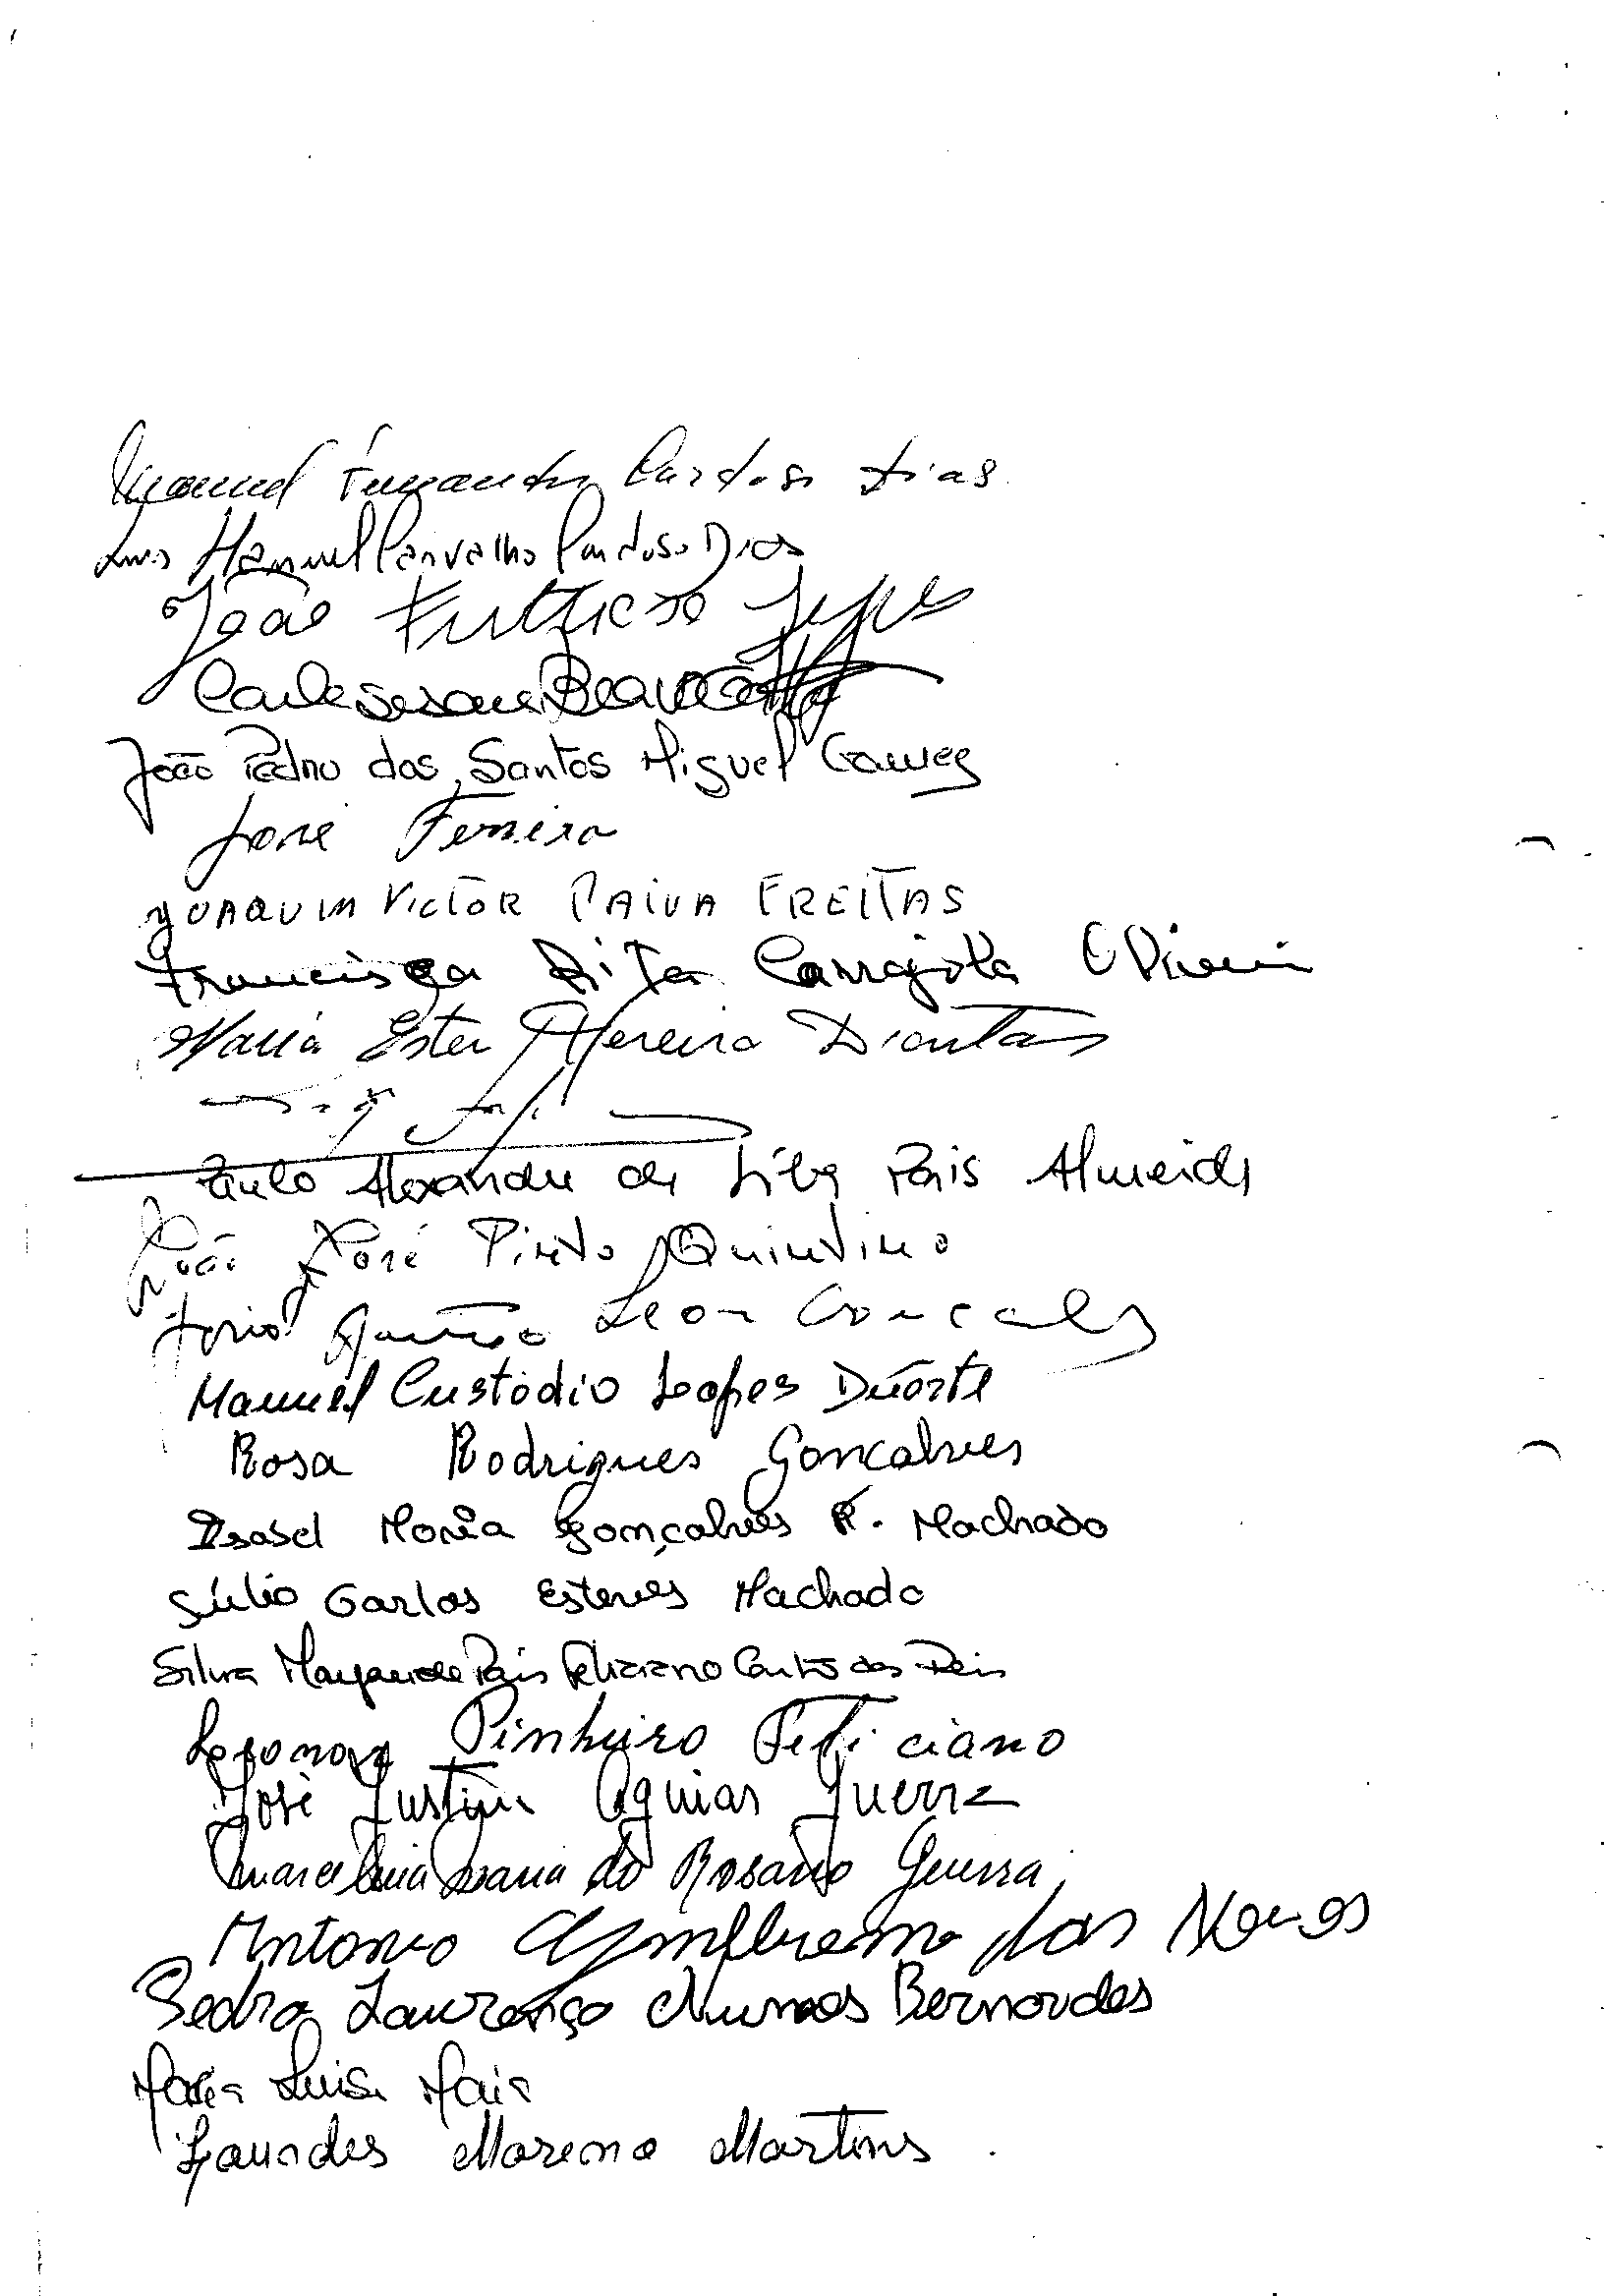 Manuel Fernando Cardoso Dias
Luis Manuel Carvalho Cardoso Dias
João Lopes
João Pedro dos Santos Miguel Gomes
José Ferreira
JOAQUIM VICTOR PAIVA FREITAS
Francisca Rita Carrajola Oliveira
Maria Ester Pereira Dantas
Paulo Alexandre da Silva Pais Almeida
João José Pinto Quintino
Leon Goncalves
Manuel Custódio Lopes Duarte
Rosa Rodrigues Goncalves
Isabel Maria Gonçalves F. Machado
Júlio Carlos Esteves Machado
Silvia Margarida Pais Feliciano Couto dos Reis
Leonor Pinheiro Feliciano
José Justino Aguiar Guerra
Maria do Rosario Guerra
Antonio das Neves
Pedro Lourenço Nunes Bernardes
Maria Luisa Maia
Lourdes Moreno Martins